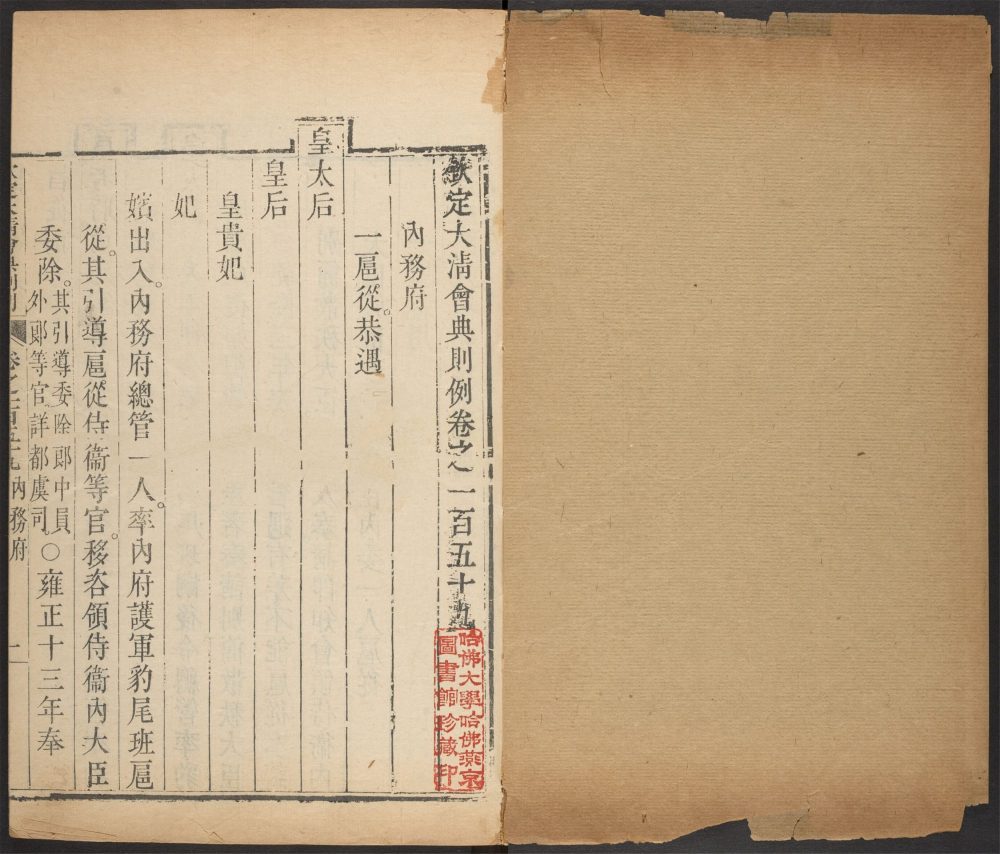 欽定大清會典則例卷之一百五十九
哈佛大學哈佛燕京
圖書館珍藏印
內務府
一扈從。恭遇
皇太后
皇后
皇貴妃
妃
嬪出入。內務府總管一人。率內府護軍豹尾班扈
從。其引導扈從侍衞等官。移咨領侍衞內大臣
委除。其引導委除郞中員
外郞等官詳都虞司。○雍正十三年奉
欽定大清會典則例 卷之一百五十九 內務府 一